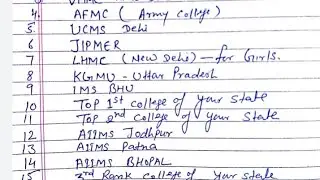 4. AFMC ( Army college )
5. UCMS Delhi
6 JIPMER
7 LHMC (New Delhi) — for Girls.
8 KGMU - Uttar Pradesh
9 IMS BHU
10 TOP 1st college of your state
11 TOP 2nd college of your state
12 AIIMS Jodhpur
13 AIIMS Patna
14 AIIMS BHOPAL
15 3rd Rank college of your state